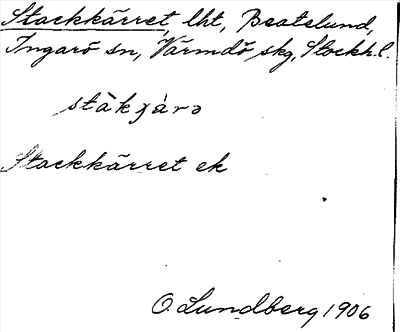 Stackkärret, lht, Beatelund,
Ingarö sn, Värmdö skg, Stockh. l.
stàkɟárə
Stackkärret ek
O. Lundberg 1906